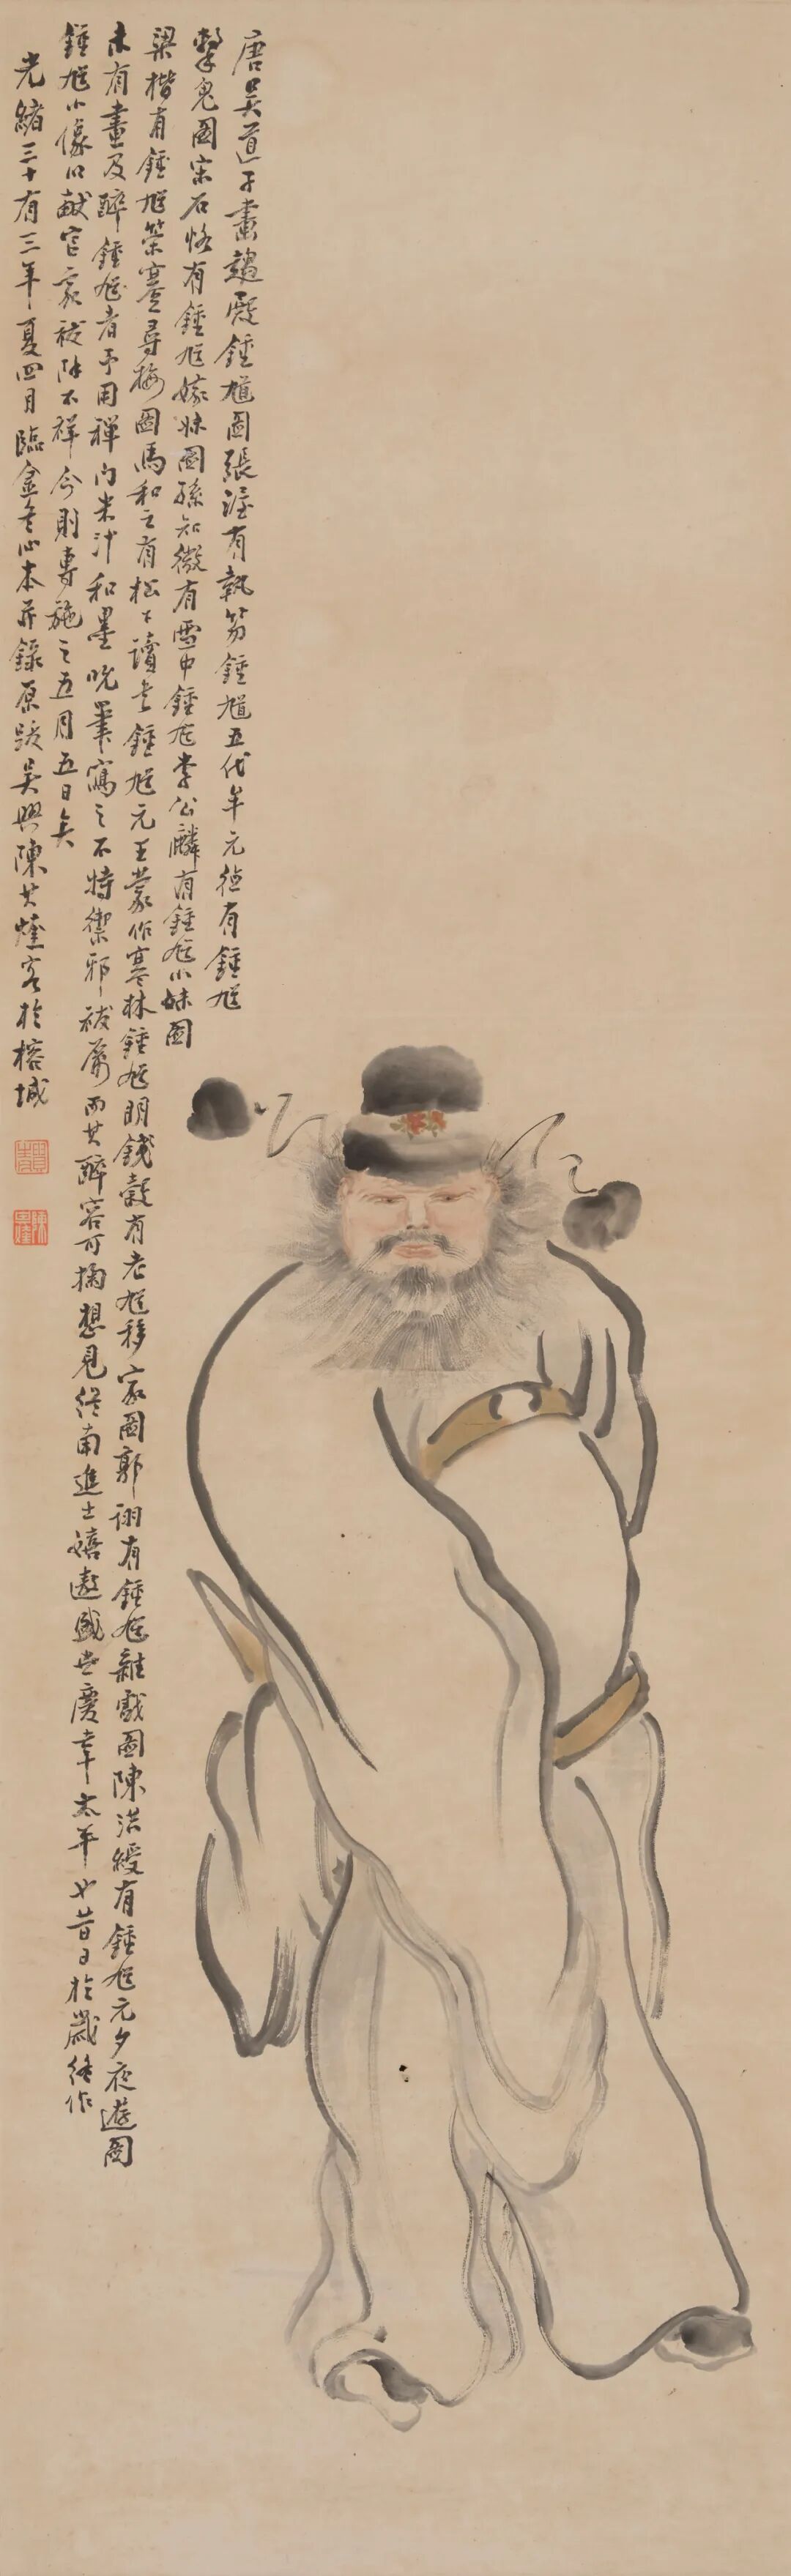 唐吳道子畫趨殿鍾馗圖張渥有執笏鍾馗五代牟元德有鍾馗
擊鬼圖宋石恪有鍾馗嫁妹圖孫知微有雪中鍾馗李公麟有鍾馗小妹圖
梁楷有鍾馗策蹇尋梅圖馬和之有松下讀書鍾馗元王蒙作寒林鍾馗明錢穀有老馗移家圖郭詡有鍾馗雜戲圖陳洪綬有鍾馗元夕夜遊圖
未有畫及醉鍾馗者予用禪門米汁和墨吮筆寫之不特禦邪祓厲而其醉容可掬想見終南進士嬉遨盛世慶幸太平也昔日於歲終作
鍾馗小像以獻官家祓除不祥今則專施之五月五日矣
光緒三十有三年夏四月臨金冬心本并錄原跋吳興陳其煃客於榕城